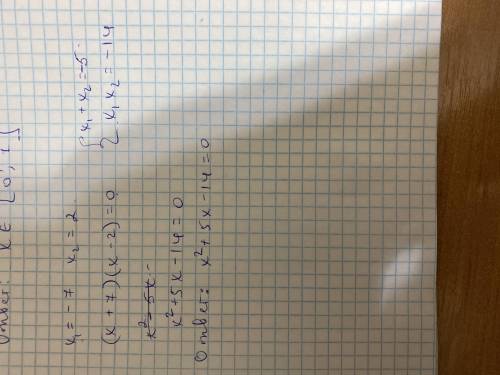 Ответ: x ∈ [0; 1]
x₁ = -7   x₂ = 2   { x₁ + x₂ = -5
{ x₁ x₂ = -14
(x + 7)(x - 2) = 0
x² - 5x -
x² + 5x - 14 = 0
Ответ: x² + 5x - 14 = 0